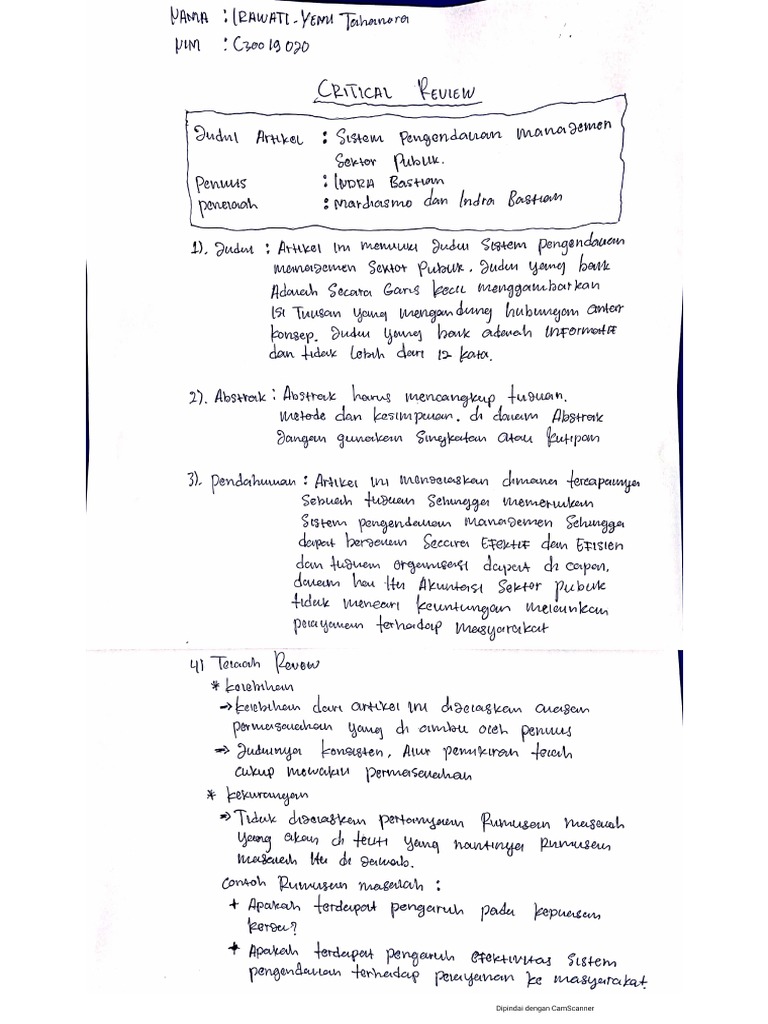 NAMA : IRAWATI-YENU Tahanora
NIM : C30019020
CRITICAL REVIEW
Judul Artikel : Sistem Pengendalian Manajemen
Sektor Publik.
Penulis : INDRA Bastian
Penelaah : Mardiasmo dan Indra Bastian
1). Judul : Artikel ini memiliki Judul Sistem pengendalian
manajemen Sektor Publik. Judul yang baik
Adalah Secara Garis kecil menggambarkan
Isi Tulisan yang mengandung hubungan antar
konsep. Judul yang baik adalah INFORMATIF
dan tidak lebih dari 12 kata.
2). Abstrak : Abstrak harus mencangkup tujuan.
metode dan kesimpulan. di dalam Abstrak
Jangan gunakan Singkatan atau kutipan
3). Pendahuluan : Artikel ini menjelaskan dimana tercapainya
Sebuah tujuan Sehingga memerlukan
Sistem pengendalian manajemen Sehingga
dapat berjalan Secara EFektiF dan EFisien
dan tujuan organisasi dapat di capai,
dalam hal itu Akuntansi Sektor publik
tidak mencari keuntungan melainkan
pelayanan terhadap masyarakat
4) Telaah Review
* kelebihan
→ kelebihan dari artikel ini dijelaskan alasan
permasalahan yang di ambil oleh penulis
→ Judulnya konsisten, Alur pemikiran telah
cukup mewakili permasalahan
* kekurangan
→ Tidak dijelaskan pertanyaan Rumusan masalah
yang akan di teliti yang nantinya Rumusan
masalah itu di jawab.
Contoh Rumusan masalah :
+ Apakah terdapat pengaruh pada kepuasan
kerja?
+ Apakah terdapat pengaruh efektivitas Sistem
pengendalian terhadap pelayanan ke masyarakat.
Dipindai dengan CamScanner